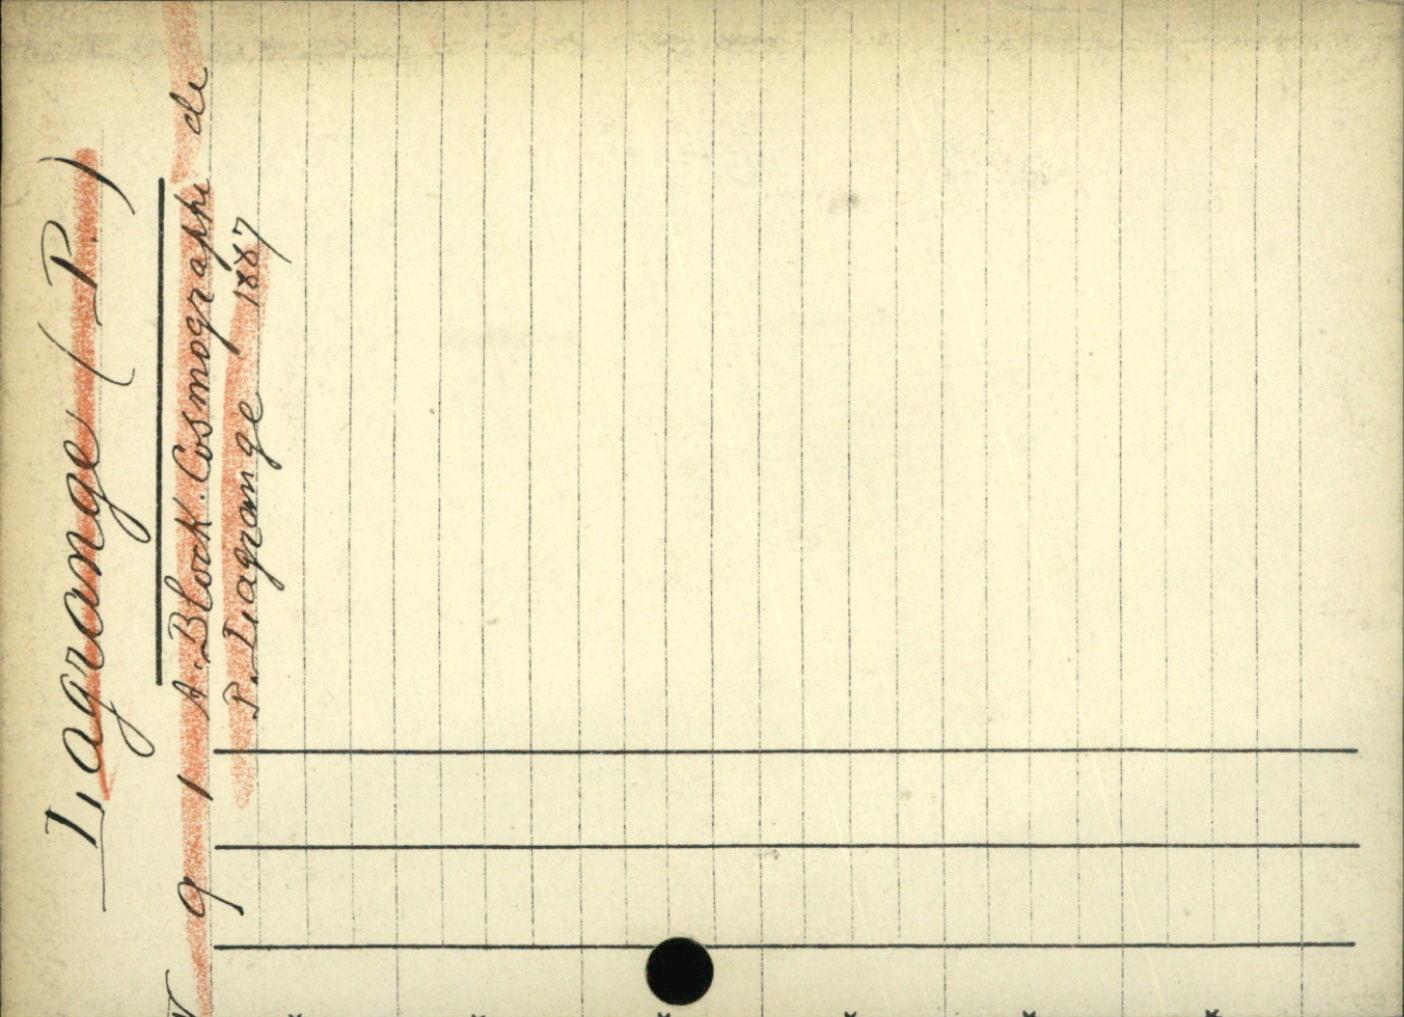 Lagrange (P.)
V 9 1 A. Block. Cosmographe de
P. Lagrange 1887